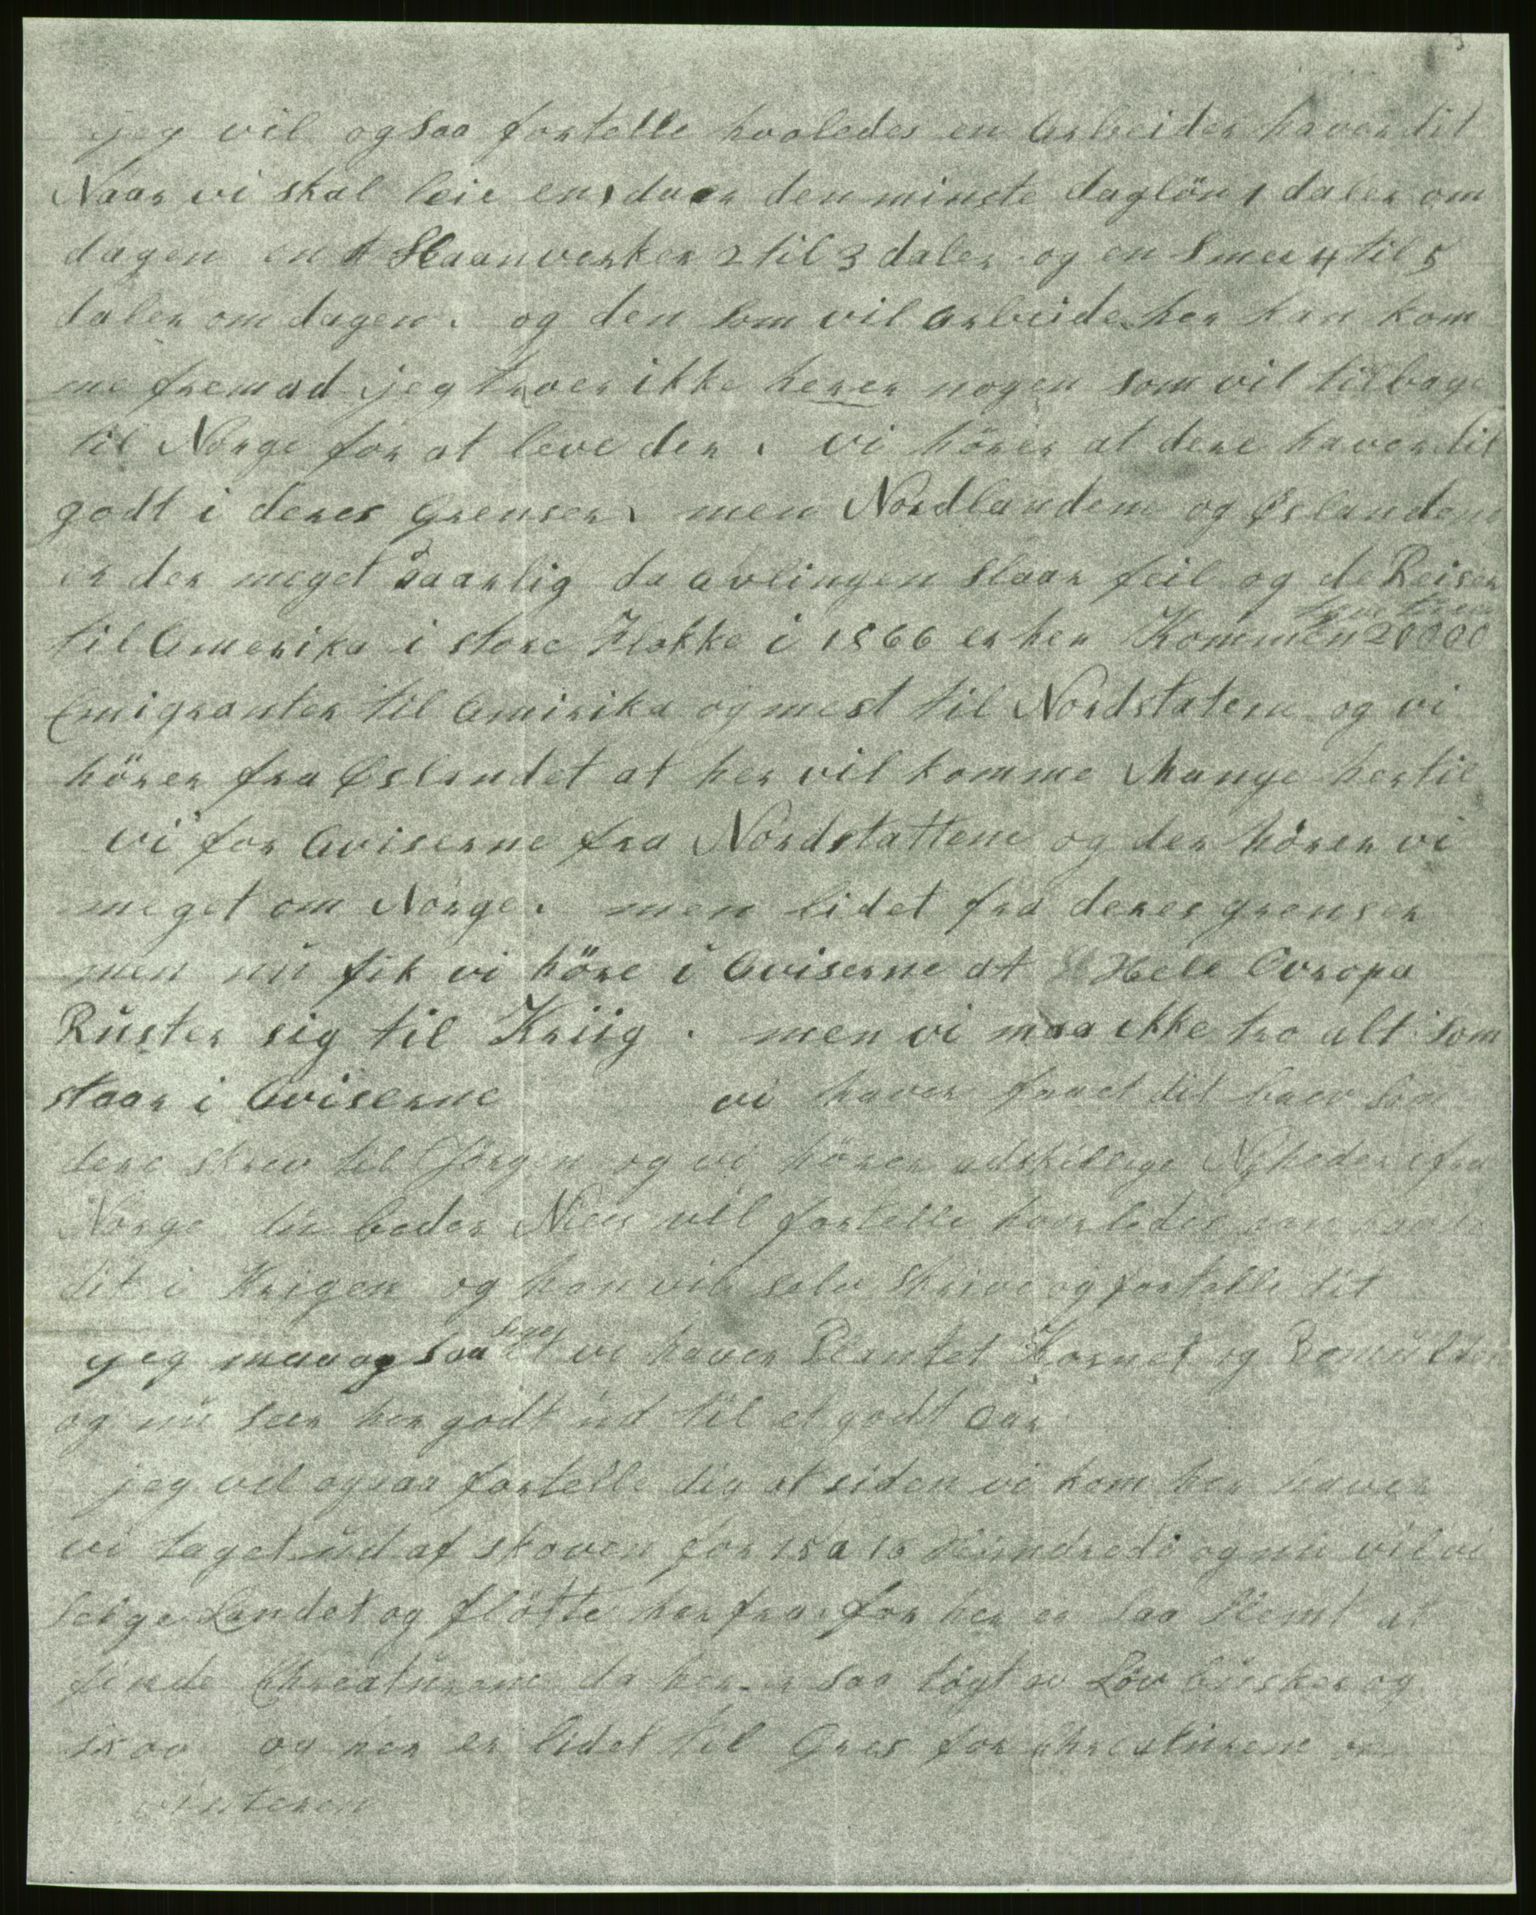 3
jeg vil ogsaa fortelle hvoledes en Arbeider haver dit
Naar vi skal leie en, du er den minste daglön 1 daler om
dagen en Haanverker 2 til 3 daler og en Smed 4 til 5
daler om dagen. og den som vil Arbeide her kan kom
me fremad jeg troer ikke her er nogen som vil tilbage
til Norge for at leve der. vi hörer at dere haver dit
godt i deres Grenser. men Nordlandene og Øslandene
er der meget daarlig da avlingen slaar feil og de Reiser
til Amerika i store Flokke i 1866 er her Kommen 20000
Emigranter til Amirika og mest til Nordstatene og vi
hörer fra Øslandet at her vil komme Mange hertil
vi for Aviserne fra Nordstattene og der hörer vi
meget om Norge. men lidet fra deres grenser
men nu fik vi höre i Aviserne at Hele Evropa
Ruster sig til Kriig. men vi maa ikke tro alt som
staar i Aviserne vi haver faaet dit brev som
dere skrev til Jörgen og vi hörer adskillige Nyheder ifra
Norge du beder Niels vil fortelle hvorledes han havde
dit i Krigen og han vil selv skrive og fortelle dit
jeg maa ogsaa sige at vi haver Plantet Kornet og Bomulden
og nu seer her godt ud til et godt aar
jeg vil ogsaa fortelle dig at siden vi kom her haver
vi taget ud af skoven for 15 a 16 Hundrede og nu vil vi
selge Landet og flötte herfra for her er saa slemt at
finde Chreaturene da her er saa tögt av Löv büsker og
skoo og her er lidet til Gres for Chreaturene om
vinteren